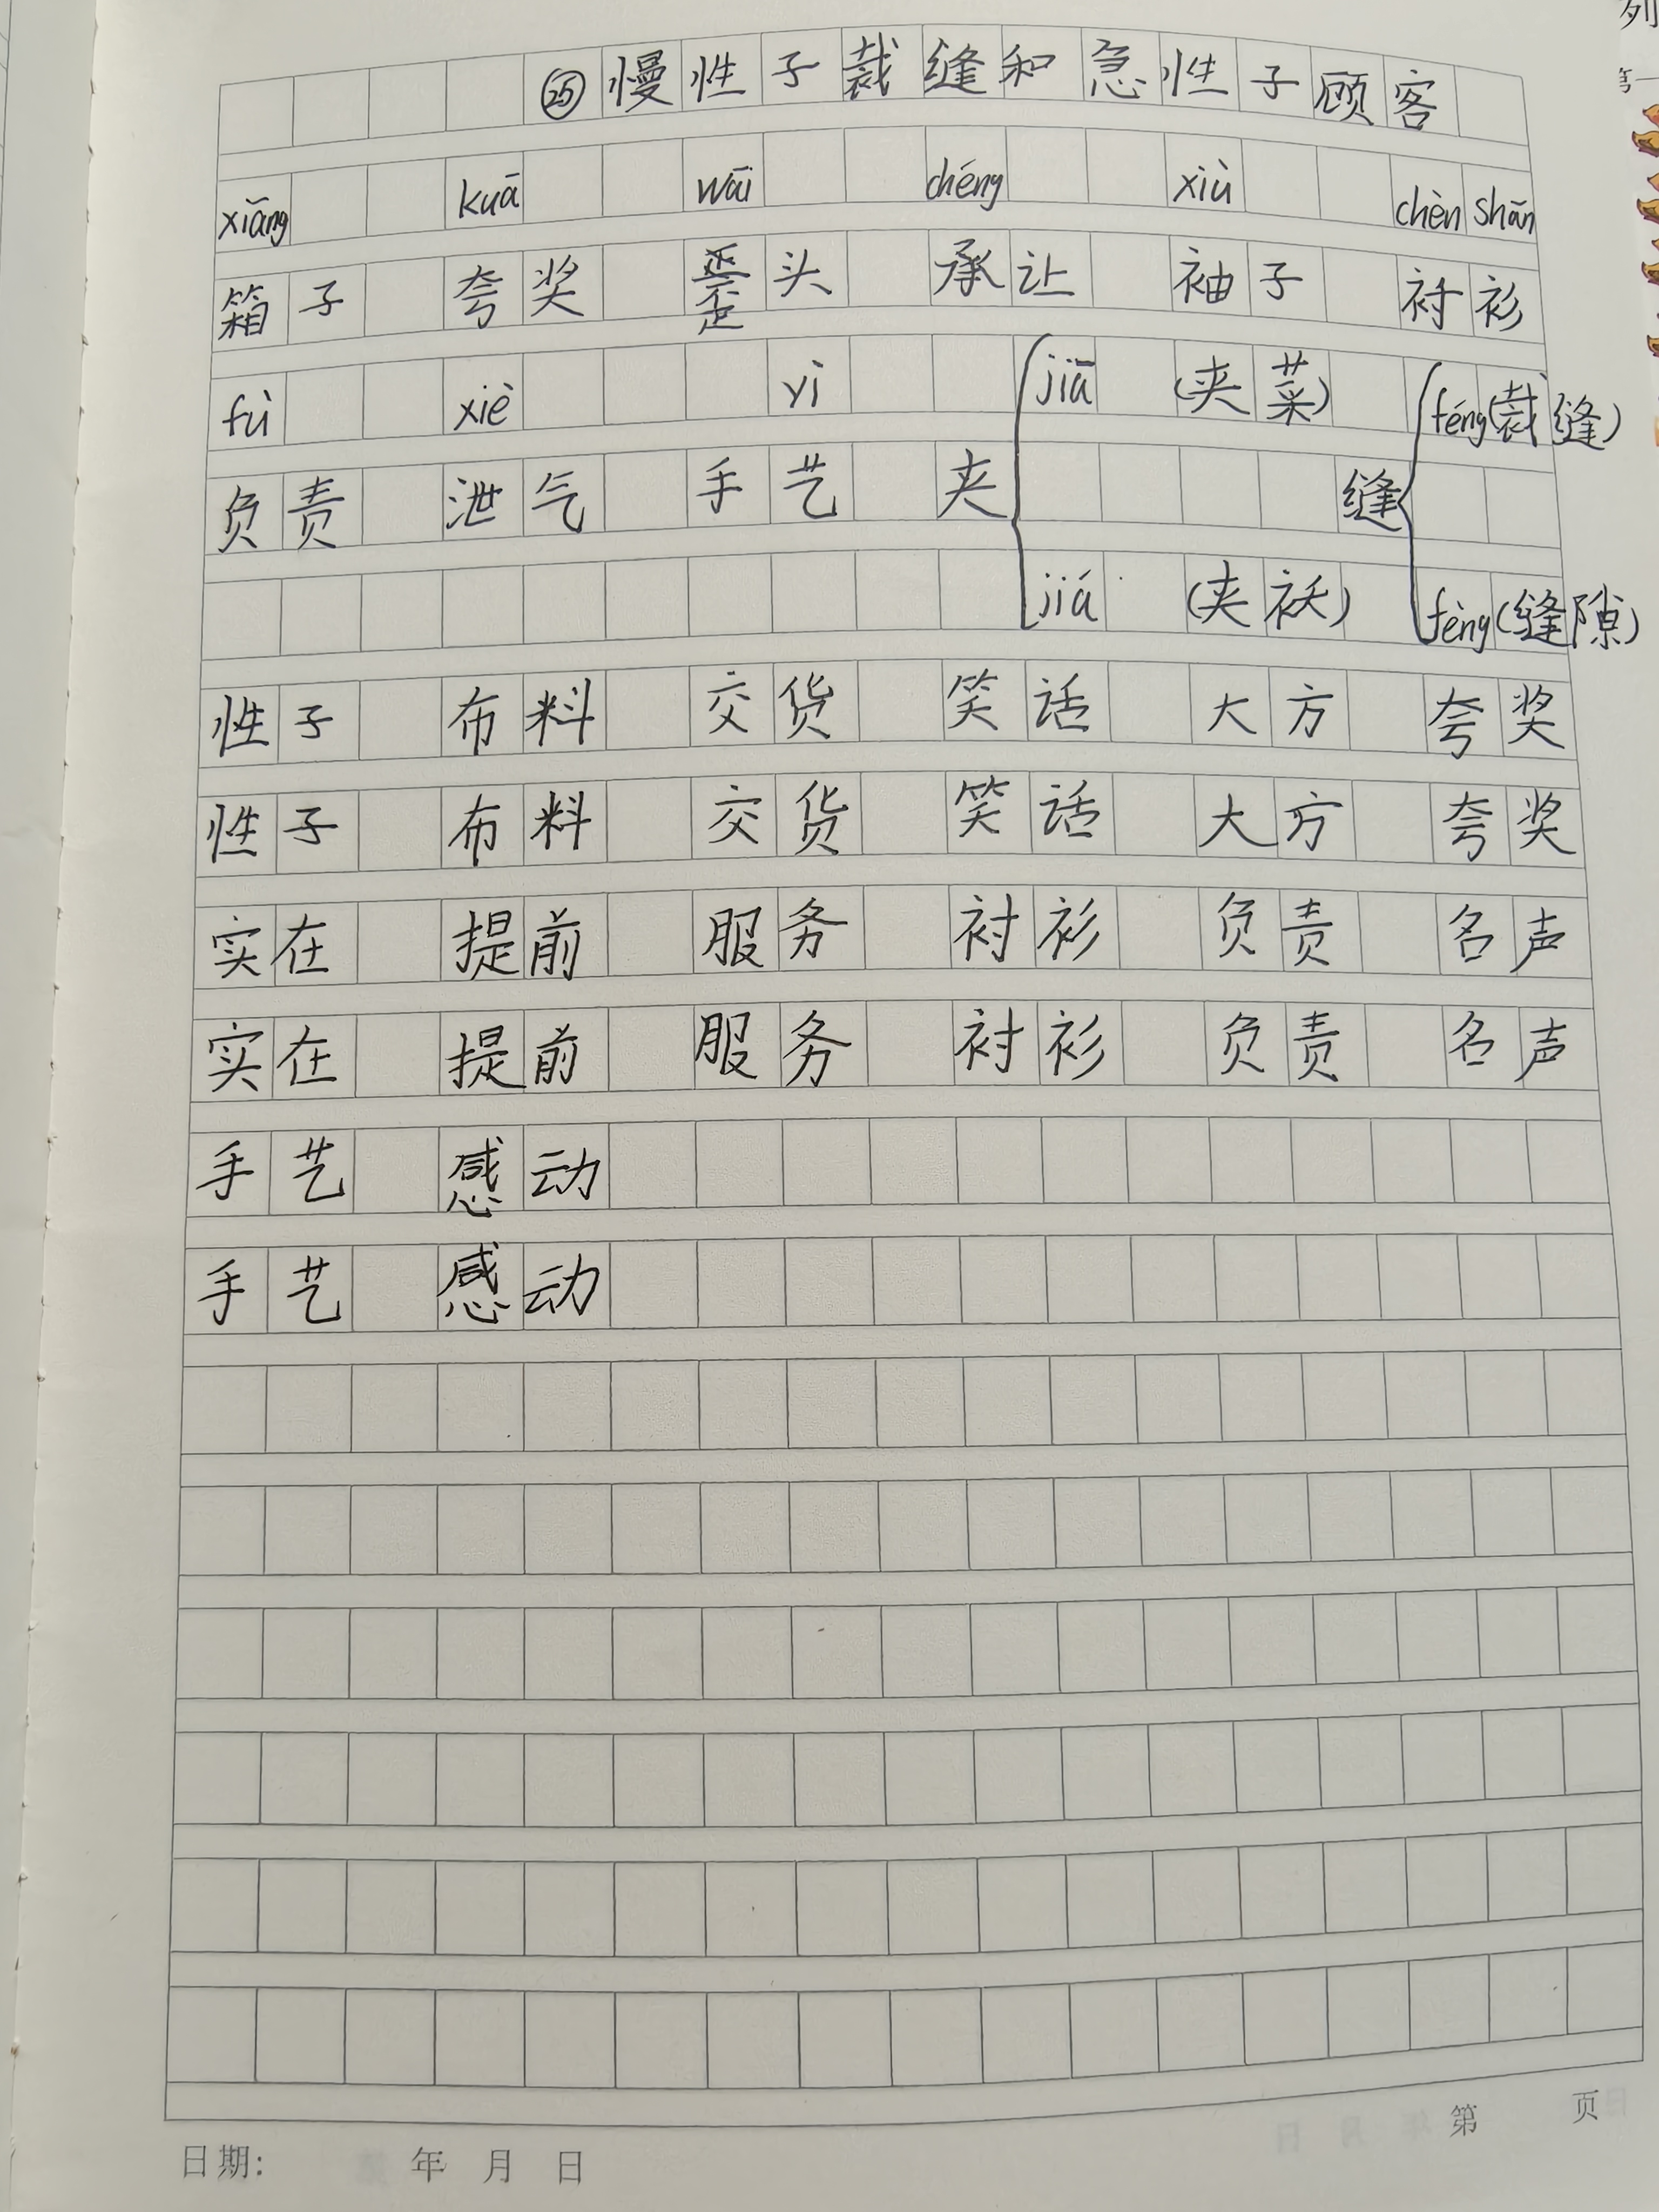 ㉕慢性子裁缝和急性子顾客
xiāng kuā wāi chéng xiù chèn shān
箱子 夸奖 歪头 承让 袖子 衬衫
fù xiè yì jiā (夹菜) féng(裁缝)
负责 泄气 手艺 夹 缝
jiá (夹袄) fèng(缝隙)
性子 布料 交货 笑话 大方 夸奖
性子 布料 交货 笑话 大方 夸奖
实在 提前 服务 衬衫 负责 名声
实在 提前 服务 衬衫 负责 名声
手艺 感动
手艺 感动
日期: 年 月 日 第 页
列
第一